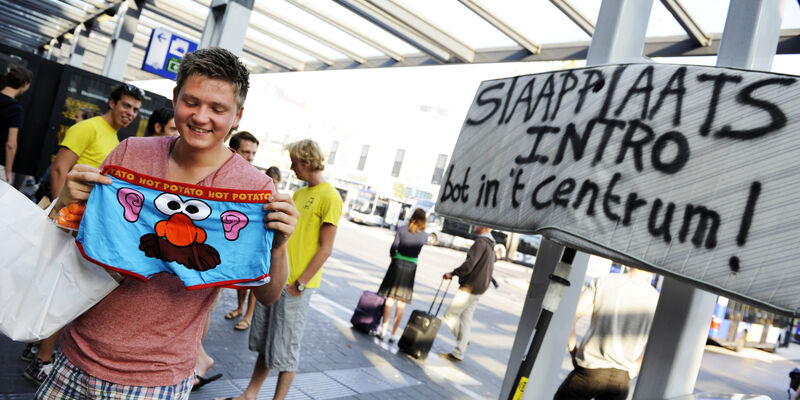 HOT POTATO HOT POTATO HOT POTATO
SlAAPPlAATS
INTRO
bot in 't centrum!